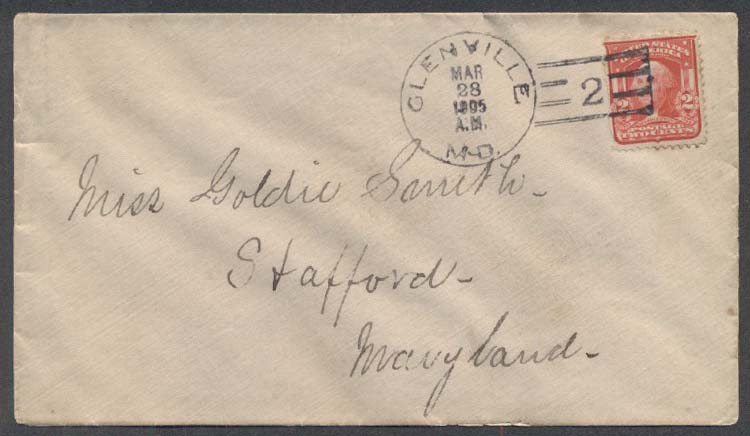 GLENVILLE
MAR
28
1905
A.M.
MD.
2
UNITED STATES
OF AMERICA
2 2
POSTAGE
TWO CENTS
Miss Goldie Smith-
Stafford-
Maryland-